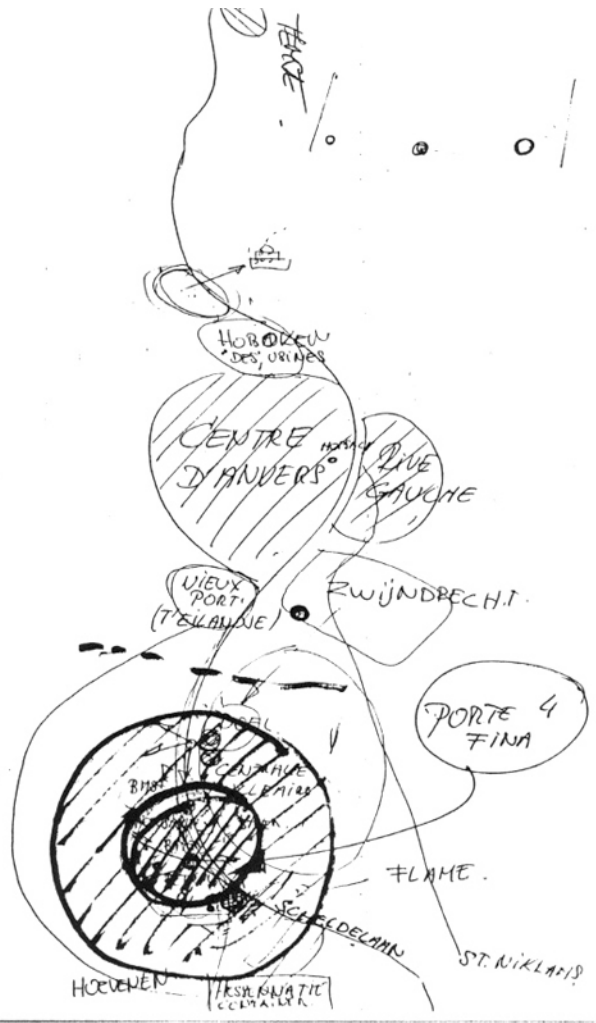 TEMSE.
HOBOKEN
"DES, USINES
CENTRE
D'ANVERS
RIVE
GAUCHE
VIEUX
PORT.
(T'EILANDJE)
ZWIJNDRECHT.
PORTE 4
FINA
CENTRALE
FLAME.
SCHELDELAAN
ST. NIKLAAS
HOEVENEN